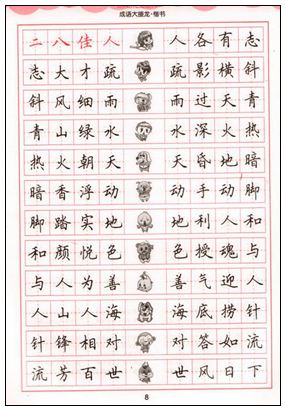 成语大接龙·楷书
二八佳人 人各有志
志大才疏 疏影横斜
斜风细雨 雨过天青
青山绿水 水深火热
热火朝天 天昏地暗
暗香浮动 动手动脚
脚踏实地 地利人和
和颜悦色 色授魂与
与人为善 善气迎人
人山人海 海底捞针
针锋相对 对答如流
流芳百世 世风日下
8